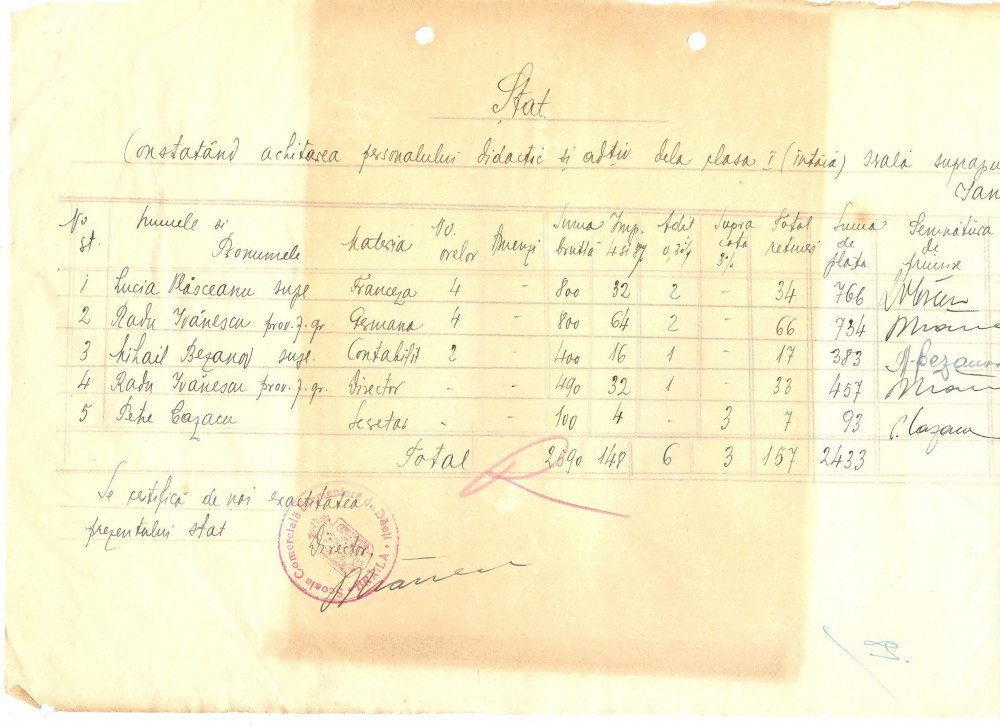 Stat
Constatând achitarea personalului didactic si adtiv dela clasa I (întâia) Seală suprapu
Ian
No st. Numele si Pronumele Materia No. orelor Amenzi Suma brută Imp. 4 si 8% Adit 0,30% Supra cota 3% Total retineri Suma de plata Semnătura de primire
1 Lucia Vlăsceanu supl Franceza 4 - 800 32 2 - 34 766
2 Radu Ivănescu prov. f. gr Germana 4 - 800 64 2 - 66 734
3 Mihail Bezanof supl. Contabilit 2 - 400 16 1 - 17 383 M. Bezanof
4 Radu Ivănescu prov. f. gr. Director - - 490 32 1 - 33 457
5 Petre Cazacu Secretar - - 100 4 - 3 7 93 P. Cazacu
Total 2590 148 6 3 157 2433
Se certifică de noi exactitatea
prezentului stat
Director,
Scoala Comercială Elementară de Băeți • BRĂILA •